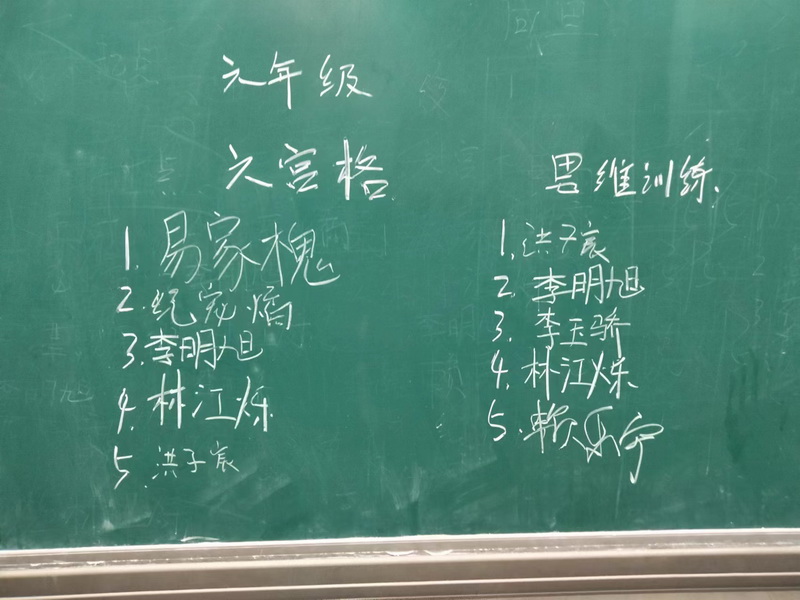 六年级
六宫格
1. 易家槐
2. 纪家熵
3. 李明旭
4. 林江烁
5. 洪子宸
思维训练.
1. 洪子宸
2. 李明旭
3. 李玉骄
4. 林江烁
5. 赖乐宁